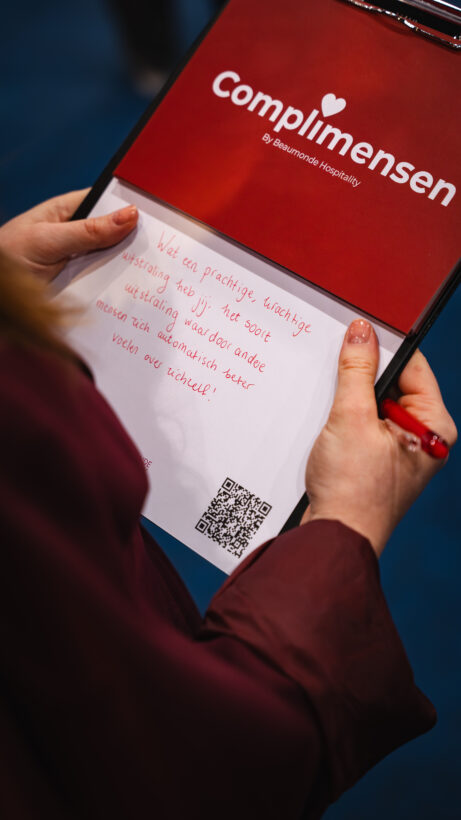 Complimensen
By Beaumonde Hospitality
Wat een prachtige, krachtige
uitstraling heb jij. Het soort
uitstraling waardoor andere
mensen zich automatisch beter
voelen over zichzelf!
DE